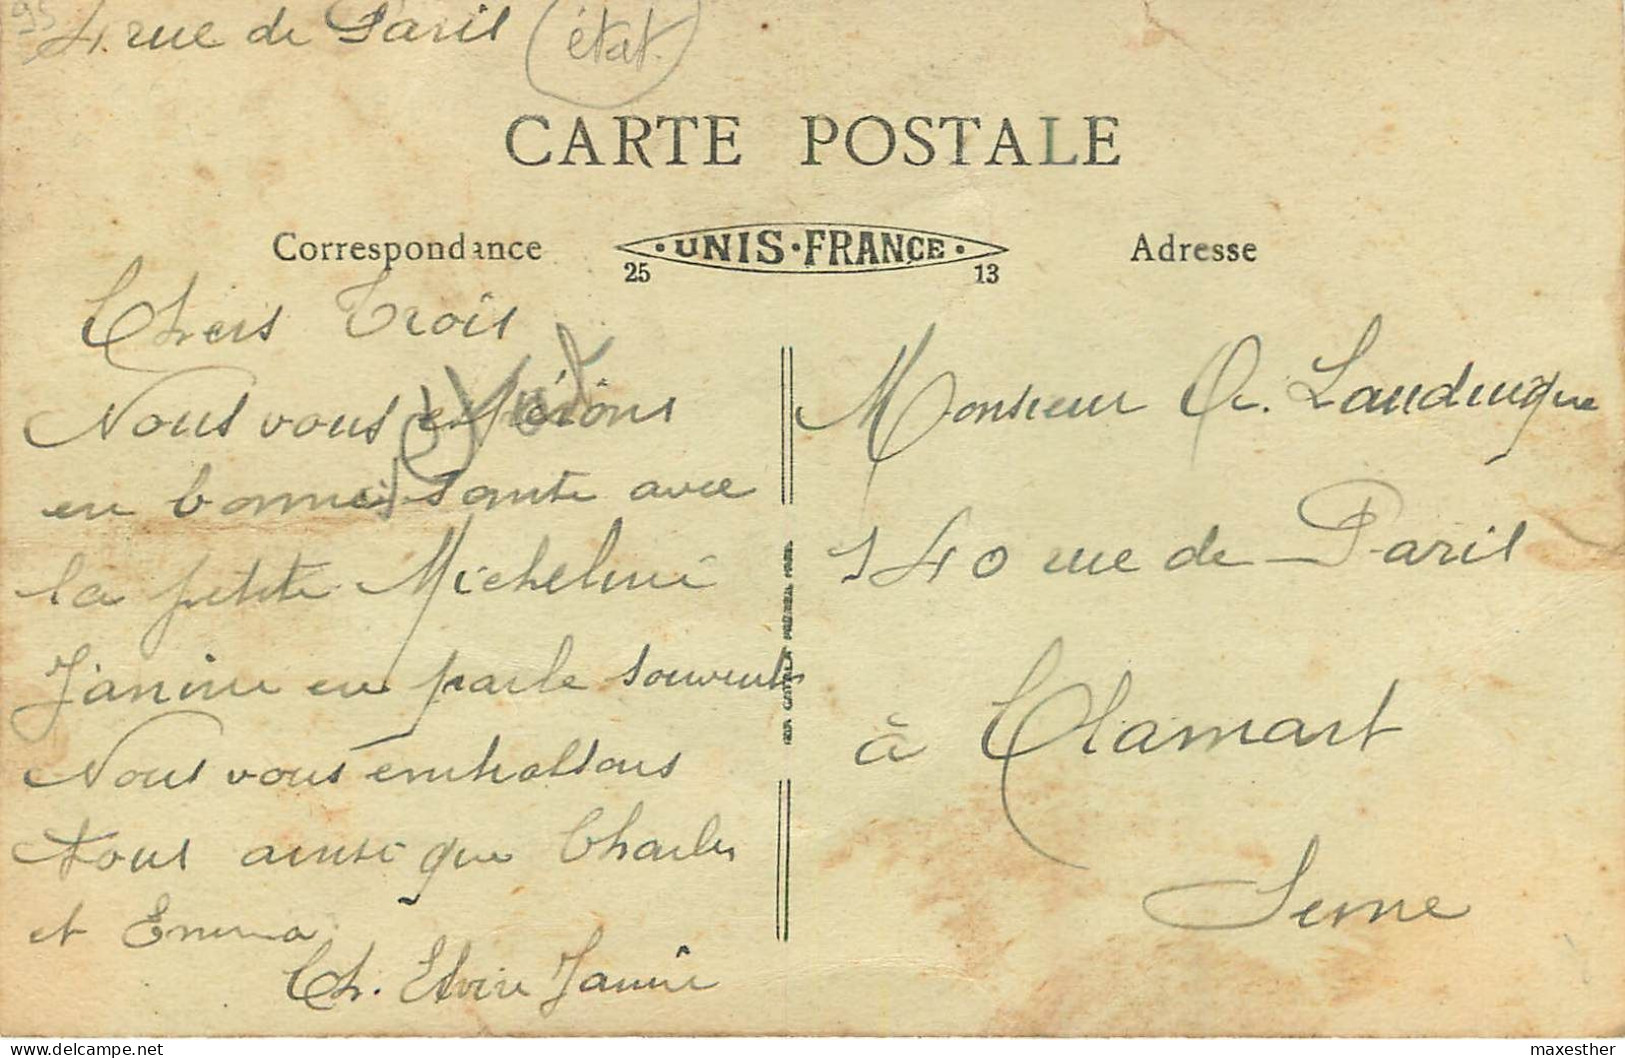 95
4 rue de Paris
état.
CARTE POSTALE
Correspondance
UNIS·FRANCE
25 13
Adresse
Chers Trois
Nous vous espérons
en bonne santé avec
la petite Micheline
Janine en parle souvent
Nous vous embrassons
tous ainsi que Charles
et Emma
Ch. Elvire Janine
Monsieur
140 rue de Paris
à Clamart
Seine
delcampe.net
maxesther